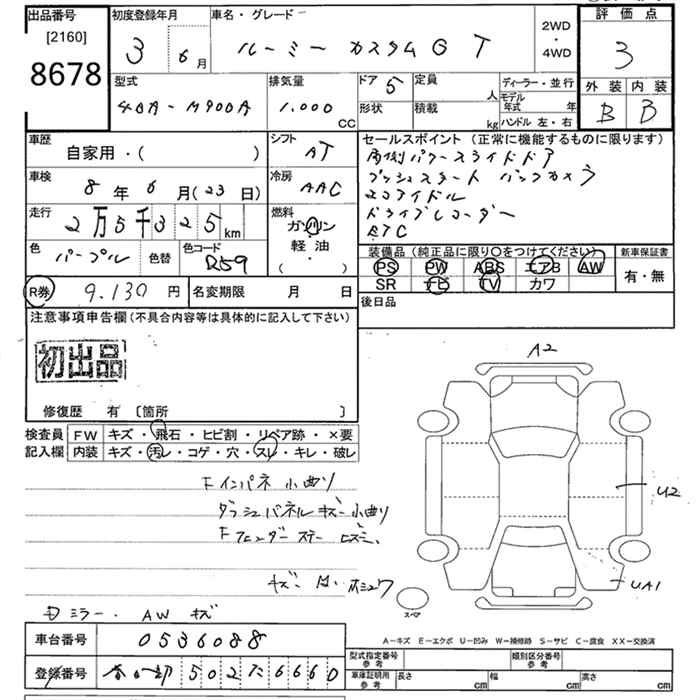 出品番号
[2160]
8678
初度登録年月
3 6月
車名・グレード
ルーミー カスタムG T
2WD
・
4WD
評価点
3
外装 内装
B B
型式
4BA-M900A
排気量
1.000
CC
ドア 5
形状
定員
人
積載
kg
ディーラー・並行
モデル
年式 年
ハンドル 左・右
車歴
自家用・( )
シフト
AT
車検
8年6月(23日)
冷房
AAC
走行
2万5千325km
燃料
ガソリン
軽油・
( )
色
パープル
色替
色コード
R59
セールスポイント(正常に機能するものに限ります)
両側パワースライドドア
プッシュスタート バックカメラ
エコアイドル
ドライブレコーダー
ETC
装備品(純正品に限り○をつけてください)
PS PW ABS エアB AW
SR ナビ TV カワ
新車保証書
有・無
R券 9.130円
名変期限 月 日
後日品
注意事項申告欄(不具合内容等は具体的に記入して下さい)
初出品
修復歴 有 〔箇所 〕
検査員
記入欄
FW キズ・飛石・ヒビ割・リペア跡・×要
内装 キズ・汚レ・コゲ・穴・スレ・キレ・破レ
Fインパネ 小曲り
ダッシュパネル キズ 小曲り
Fフェンダーステー ヒズミ
キズ 凹 ホシュウ
ミラー. AW キズ
A2
U2
UA1
スペア
A-キズ E-エクボ U-凹み W-補修跡 S-サビ C-腐食 XX-交換済
車台番号 0536088
登録番号 502 た 6660
型式指定番号
参考
類別区分番号
参考
車庫証明用
参考
長さ cm
幅 cm
高さ cm